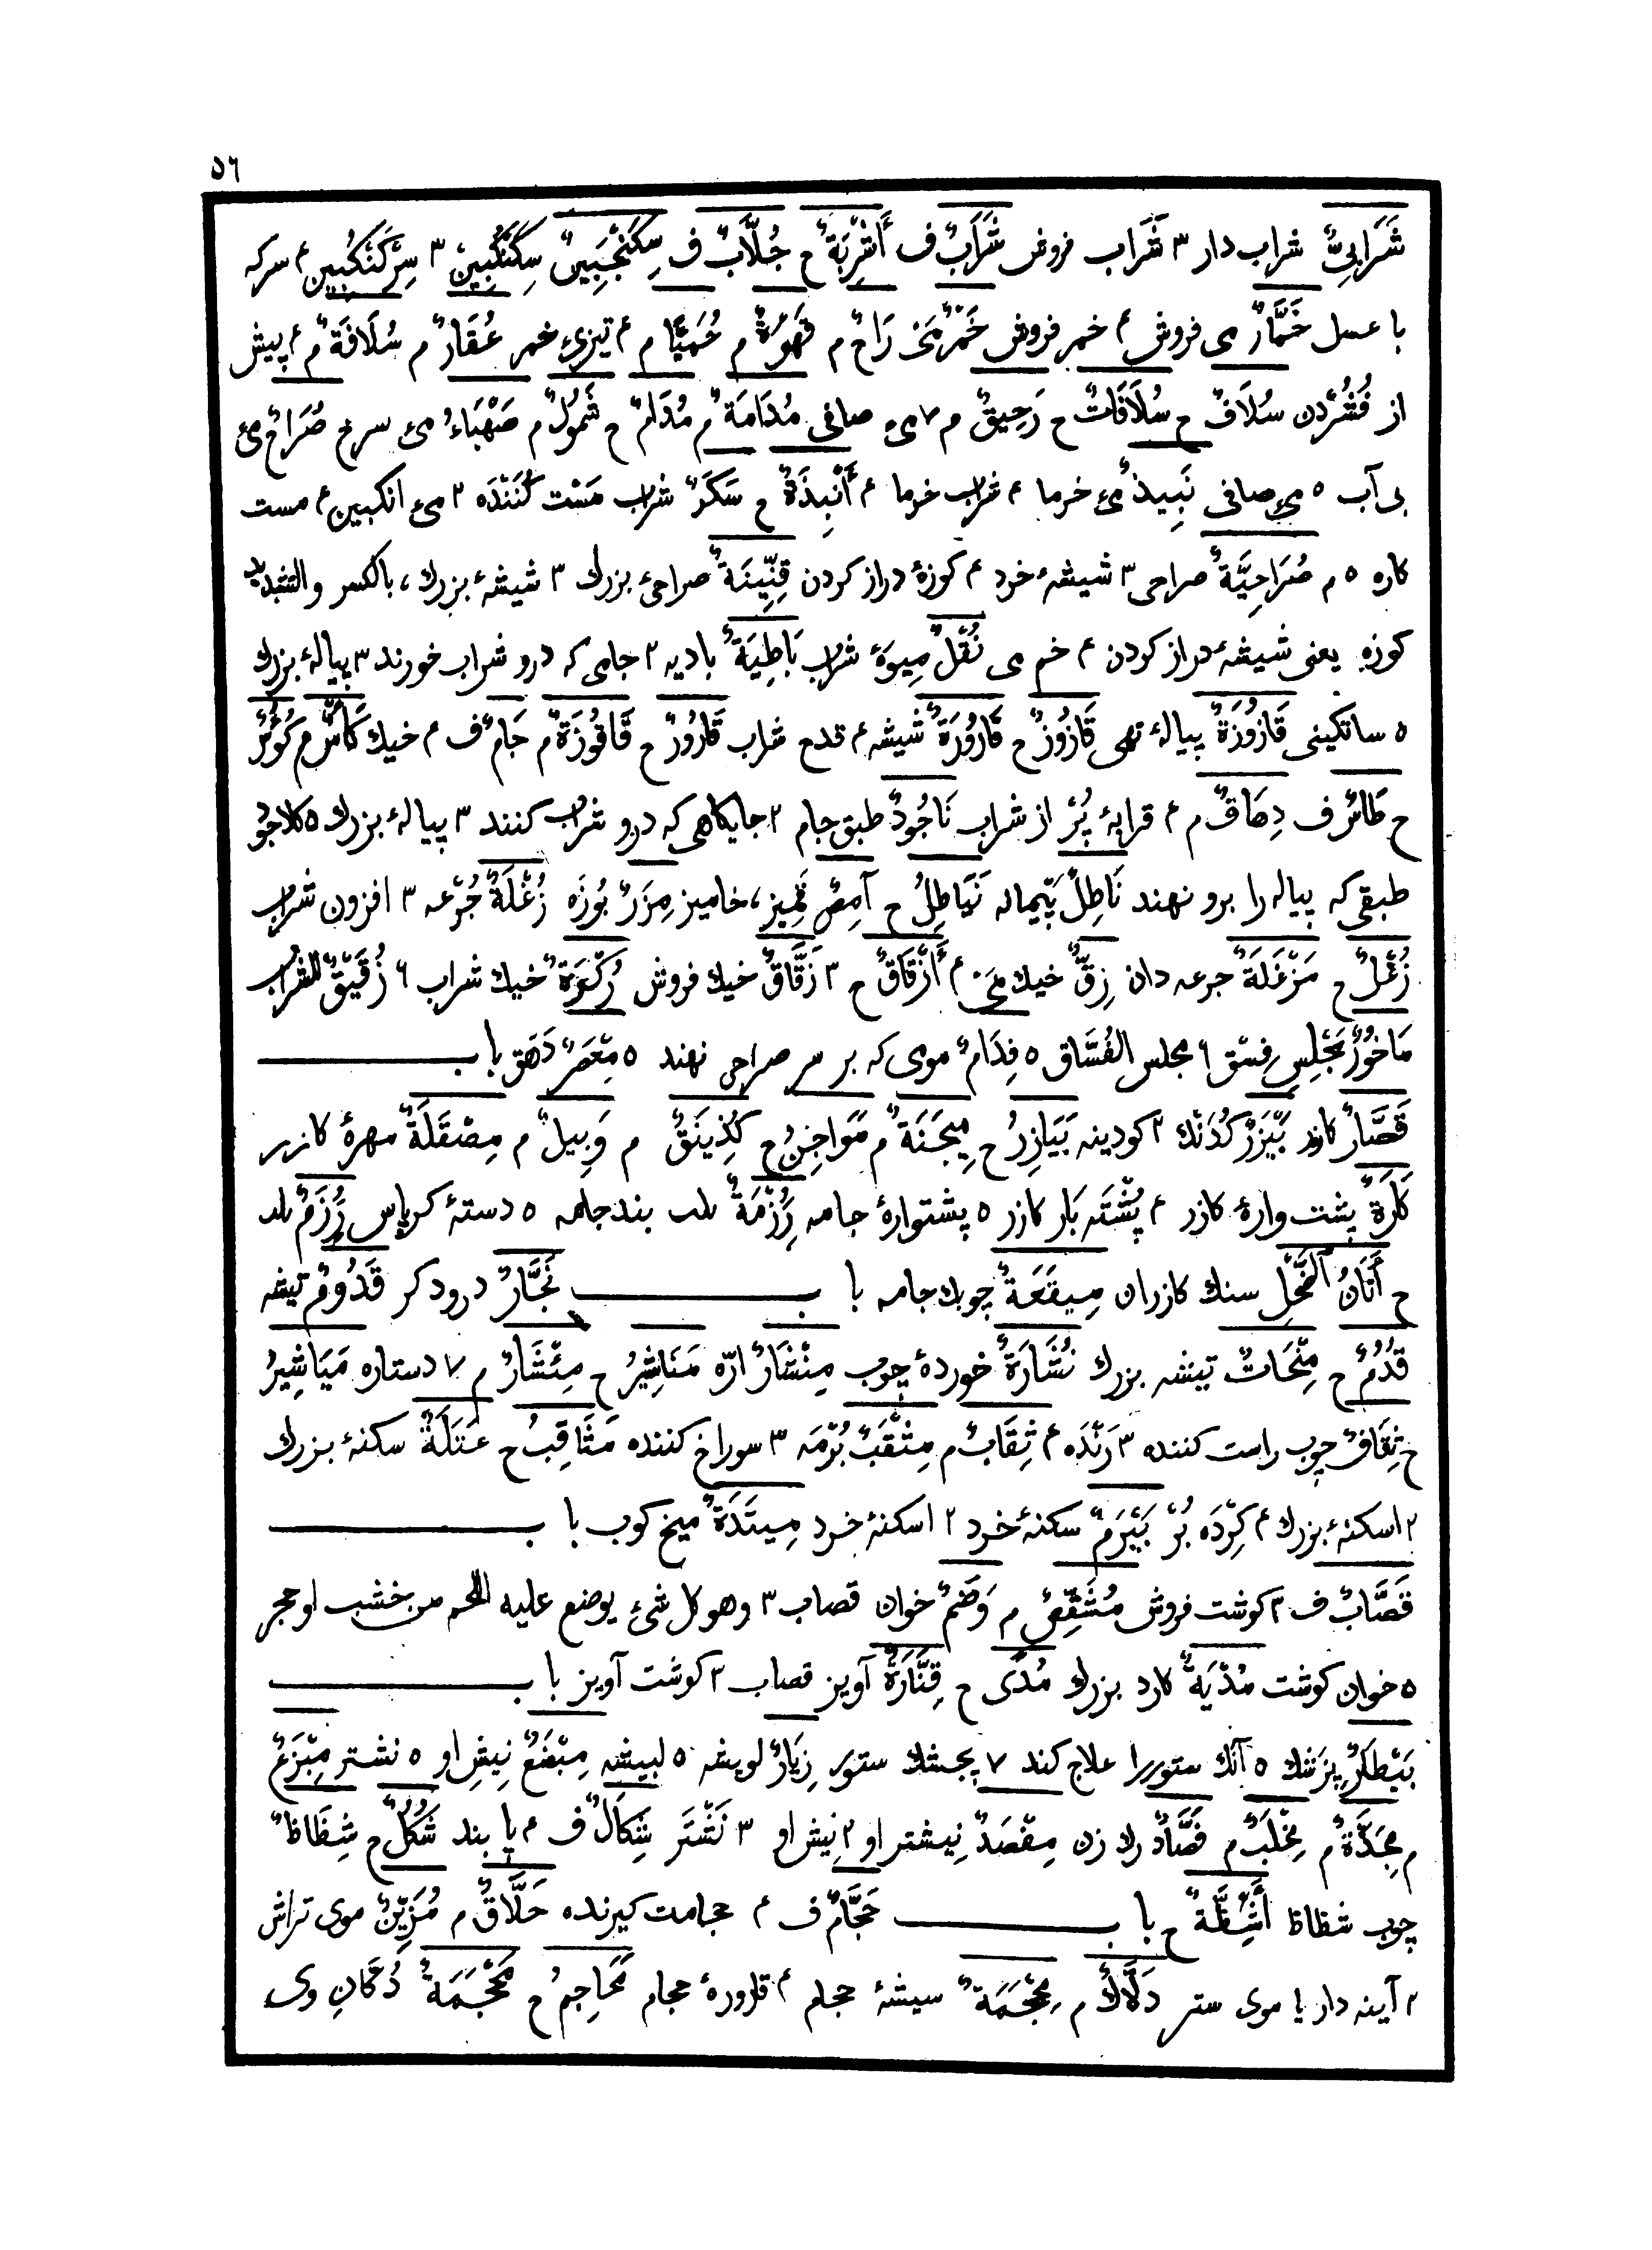 ٥٦
شَرَابِيٌّ شراب دار ٣ شَرَاب فروش شَرَابٌ ف أَشْرِبَةٌ ح جُلَّابٌ ف سِكَنْجَبِينٌ سِكَنْكَبِين ٣ سِرْكَنْكُبِين ۴ سركه
با عسل خَمَّارٌ می فروش ۴ خمر فروش خَمْرٌ مَی رَاحٌ م قَهْوَةٌ م حُمَيَّا م ۴ تیزیِ خمر عُقَارٌ م سُلَافَةٌ م ۴ پیش
از فُشُرْدن سُلَافٌ ح سُلَافَاتٌ ح رَحِيقٌ م ٧ میِ صافی مُدَامَةٌ م مُدَامٌ ح شَمُولٌ م صَهْبَاءُ میِٔ سرخ صُرَاحٌ میِٔ
بی آب ٥ میِ صافی نَبِيذٌ میِٔ خرما ۴ شراب خرما ۴ أَنْبِذَةٌ ح سَكَرٌ شراب مَسْت كُنَنْدَه ٢ میِٔ انکبین ۴ مست
کاره ٥ م صُرَاحِيَّةٌ صراحی ٣ شیشهٔ خرد ۴ کوزهٔ دراز کردن قِنِّينَةٌ صراحیٔ بزرك ٣ شیشهٔ بزرك ، بالکسر والتشدید
کوزه یعنی شیشهٔ دراز کردن ۴ خم می نُقْلٌ مِيوَهٔ شراب بَاطِيَةٌ بادیه ٢ جامی که درو شراب خورند ٣ پیالهٔ بزرك
٥ ساتکینی قَازُوزَةٌ پیالهٔ تهی قَازُوزٌ ح قَارُورَةٌ شیشه ۴ قدح شراب قَارُورٌ ح قَاقُوزَةٌ م جَامٌ ف ۴ خیك كَأْسٌ م كُؤُسٌ
ح طَاسٌ ف دِهَاقٌ م ۴ قرابهٔ پُرْ از شراب نَاجُودٌ طبق جام ٢ جایکاهی که درو شراب کنند ٣ پیالهٔ بزرك ٥ کلاجو
طبقی که پیاله را برو نهند نَاطِلٌ پَیماله نَيَاطِلُ ح آمِصٌ خامیز مِزَرٌ بُوزَه زُغْلَةٌ جُرْعه ٣ افزون شراب
زُغَلٌ ح مَزْغَلَةٌ جرعه دان زِقٌّ خیك مَی ۴ أَزْقَاقٌ ح ٣ زَقَّاقٌ خیك فروش رَكْوَةٌ خیك شراب ٦ زُقَيْقٌ للشراب
مَاخُورٌ مَجْلِسِ فِسْق ٦ مجلس الفُسَّاق ٥ فِدَامٌ موی که بر سر صراحی نهند ٥ مِعْصَرٌ دَهَق با ب
قَصَّارٌ کازر بَيْزَرٌ كُدَنْك ٢ کودینه بَيَازِرُ ح مِيجَنَةٌ م مَوَاجِنُ ح كُذِينَقٌ م وَبِيلٌ م مِصْقَلَةٌ مهرهٔ کازر
كَارَةٌ پشت وارهٔ کازر ۴ پُشْتَه بَار کازر ٥ پشتوارهٔ جامه رِزْمَةٌ بند جامه ٥ دستهٔ کرباس رِزَمٌ
ح أَتَانُ الضَّحْلِ سنك کازران مِيقَعَةٌ چوبك جامه با ب نَجَّارٌ درود کر قَدُومٌ تیشه
قُدُمٌ ح مِنْحَاتٌ تیشه بزرك نُشَارَةٌ خوردهٔ چوب مِنْشَارٌ ارّه مَنَاشِيرُ ح مِئْشَارٌ م ٧ دستاره مَيَاشِيرُ
ح ثِقَافٌ چوب راست کننده ٣ رَنْدَه ۴ ثِقَابٌ م مِثْقَبٌ بُرْمَه ٣ سوراخ کننده مَثَاقِبُ ح عَتَلَةٌ سکنهٔ بزرك
٢ اسکنهٔ بزرك ۴ كِرْدَه بُرْ بَيْرَمٌ سکنهٔ خرد ٢ اسکنهٔ خرد مِيتَدَةٌ میخ کوب با ب
قَصَّابٌ ف ٣ کوشت فروش مُشَقِّصٌ م وَضَمٌ خوان قصاب ٣ وهو کل شیٔ یوضع علیه اللحم من خشب او حجر
٥ خوان کوشت مُدْيَةٌ کارد بزرك مُدًى ح قِنَّارَةٌ آویز قصاب ٣ کوشت آویز با ب
بَيْطَرٌ پزشك ٥ آنك ستور را علاج کند ٧ پجشك ستور زِيَارٌ لویشه ٥ لبیشه مِبْضَعٌ نِیشِ او ٥ نشتر مِبْزَغٌ
م مِجَدَّةٌ م مِخْلَبٌ م فَصَّادٌ رك زن مِفْصَدٌ نِیشتر او ٢ نِیش او ٣ نَشْتَر شِكَالٌ ف ۴ پا بند شُكُلٌ ح شِظَاظٌ
چوب شظاظ أَشِظَّةٌ ح با ب حَجَّامٌ ف ۴ حجامت کیرنده حَلَّاقٌ م مُزَيِّنٌ موی تراش
٢ آینه دار یا موی ستر دَلَّاكٌ م مِحْجَمَةٌ سیشهٔ حجام ۴ قارورهٔ حجام مَحَاجِمُ ح مَحْجَمَةٌ دُكَّانِ وی